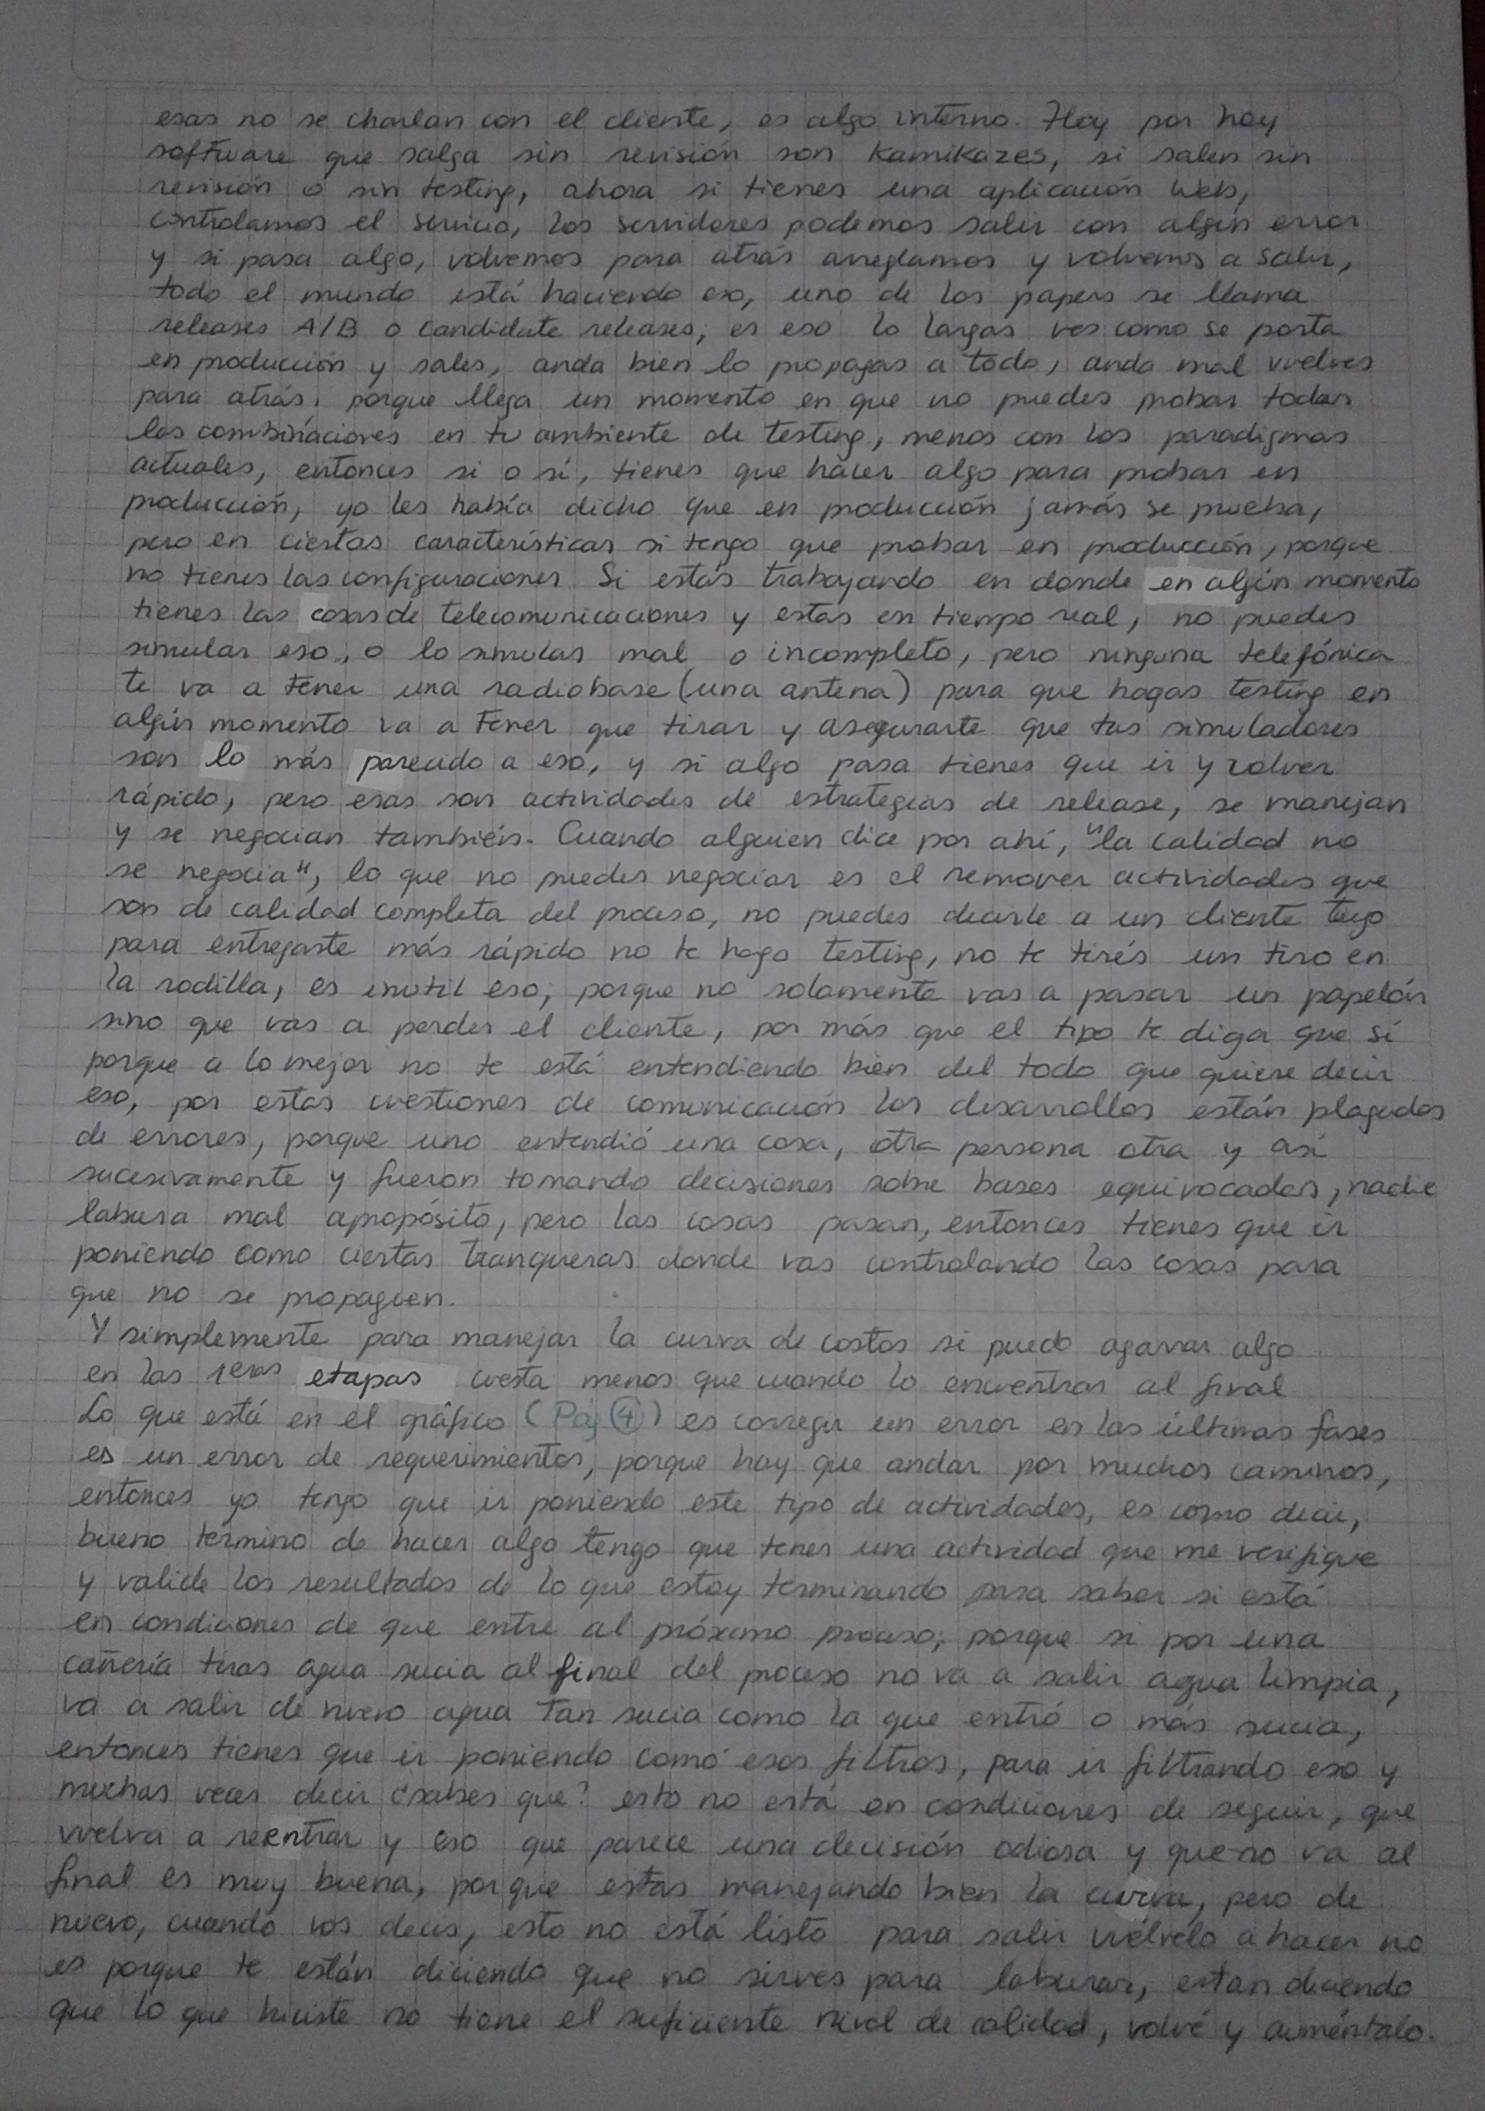 esas no se charlan con el cliente, es algo interno. Hoy por hoy
software que salga sin revisión son Kamikazes, si salen sin
revisión o sin testing, ahora si tienes una aplicación Web,
controlamos el servicio, los servidores podemos salir con algún error
y si pasa algo, volvemos para atrás arreglamos y volvemos a salir,
todo el mundo está haciendo eso, uno de los papers se llama
releases A/B o candidate releases; es eso lo largas ves como se porta
en producción y sales, anda bien lo propagas a todo, anda mal vuelves
para atrás, porque llega un momento en que no puedes probar todas
las combinaciones en tu ambiente de testing, menos con los paradigmas
actuales, entonces si o sí, tienes que hacer algo para probar en
producción, yo les había dicho que en producción jamás se prueba,
pero en ciertas características si tengo que probar en producción, porque
no tienes las configuraciones. Si estás trabajando en donde en algún momento
tienes las cosas de telecomunicaciones y estás en tiempo real, no puedes
simular eso, o lo simulas mal o incompleto, pero ninguna telefónica
te va a tener una radiobase (una antena) para que hagas testing en
algún momento va a tener que tirar y asegurarte que tus simuladores
son lo más parecido a eso, y si algo pasa tienes que ir y volver
rápido, pero esas son actividades de estrategias de release, se manejan
y se negocian también. Cuando alguien dice por ahí, "la calidad no
se negocia", lo que no puedes negociar es el remover actividades que
son de calidad completa del proceso, no puedes decirle a un cliente tuyo
para entregarte más rápido no te hago testing, no te tirés un tiro en
la rodilla, es inútil eso, porque no solamente vas a pasar un papelón
sino que vas a perder el cliente, por más que el tipo te diga que sí
porque a lo mejor no te está entendiendo bien del todo que quiere decir
eso, por estas cuestiones de comunicación los desarrollos están plagados
de errores, porque uno entendió una cosa, otra persona otra y así
sucesivamente y fueron tomando decisiones sobre bases equivocadas, nadie
labura mal apropósito, pero las cosas pasan, entonces tienes que ir
poniendo como ciertas tranqueras donde vas controlando las cosas para
que no se propaguen.
Y simplemente para manejar la curva de costos si puedo agarrar algo
en las 1eras etapas cuesta menos que cuando lo encuentras al final.
Lo que está en el gráfico (Pág ④) es corregir un error en las últimas fases
es un error de requerimientos, porque hay que andar por muchos caminos,
entonces yo tengo que ir poniendo este tipo de actividades, es como decir,
bueno termino de hacer algo tengo que tener una actividad que me verifique
y valide los resultados de lo que estoy terminando para saber si está
en condiciones de que entre al próximo proceso; porque si por una
cañería tiras agua sucia al final del proceso no va a salir agua limpia,
va a salir de nuevo agua tan sucia como la que entró o más sucia,
entonces tienes que ir poniendo como esos filtros, para ir filtrando eso y
muchas veces decir ¿sabes que? esto no está en condiciones de seguir, que
vuelva a reentrar y eso que parece una decisión odiosa y que no va al
final es muy buena, porque estas manejando bien la curva, pero de
nuevo, cuando vos decis, esto no está listo para salir vuélvelo a hacer no
es porque te están diciendo que no sirves para laburar, estan diciendo
que lo que hiciste no tiene el suficiente nivel de calidad, volvé y auméntalo.